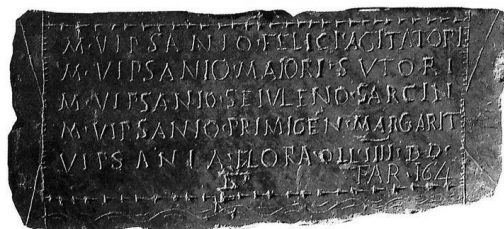 M·VIPSANIO·FELICI·AGITATORI
M·VIPSANIO·MAIORI·SVTORI
M·VIPSANIO·SEIVLENO·SARCIN
M·VIPSANIO·PRIMIGEN·MARGARIT
VIPSANIA·FLORA·OLL·IIII·B·D·
FAR·164